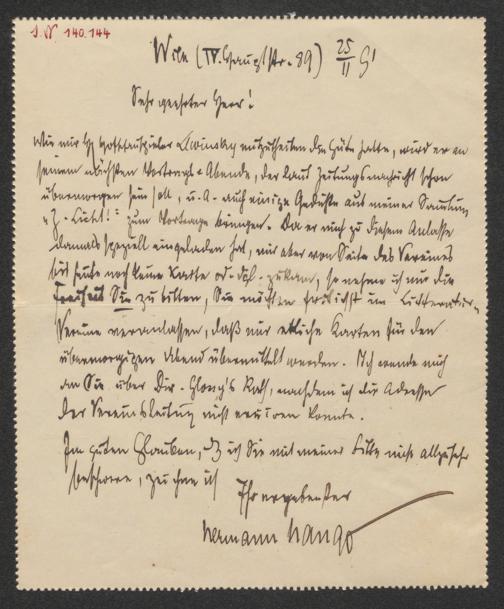 J. N. 140.144
Wien (IV. Hauptstr. 89) 25/II 91
Sehr geehrter Herr!
Wie mir H. Hofschauspieler Lewinsky mitzutheilen die Güte hatte, wird er an
seinem nächsten Vortrags-Abende, der laut Zeitungsnachricht schon
übermorgen sein soll, u. A. auch einige Gedichte aus meiner Samlung
Licht!" zum Vortrage bringen. Da er mich zu diesem Anlasse
damals speziell eingeladen hat, mir aber von Seite des Vereines
bis heute noch keine Karte od. dgl. zukam, so nehme ich mir die
Freiheit Sie zu bitten, Sie möchten freilichst im Litteratur-
Vereine veranlassen, daß mir etliche Karten für den
übermorgigen Abend übermittelt werden. Ich wende mich
an Sie über Dir. Glossy's Rath, nachdem ich die Adresse
der Vereinsleitung nicht eruiren konnte.
Im guten Glauben, daß ich Sie mit meiner Bitte nicht allzusehr
beschwere, zeichne ich
Ihr ergebenster
Hermann Hango